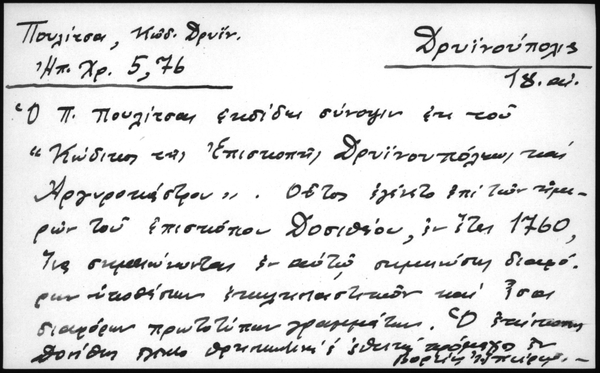 Πουλίτσα, Κώδ. Δρυϊν.
Ἠπ. Χρ. 5, 76
Δρυϊνούπολις
18. αἰ.
Ὁ Π. Πουλίτσας ἐκδίδει σύνοψιν ἐκ τοῦ
"Κώδικος τῆς Ἐπισκοπῆς Δρυϊνουπόλεως καὶ
Ἀργυροκάστρου". Οὗτος ἐγένετο ἐπὶ τῶν ἡμε-
ρῶν τοῦ ἐπισκόπου Δοσιθέου, ἐν ἔτει 1760,
ἵνα σημειώνωνται ἐν αὐτῷ σημειώσεις διαφό-
ρων ὑποθέσεων ἐκκλησιαστικῶν καὶ ἴσα
διαφόρων πρωτοτύπων γραμμάτων. Ὁ ἐπίσκοπος
Δοσίθεος ἐθνικὴ πρόμαχος ἐν
βορείῳ Ἠπείρῳ.—